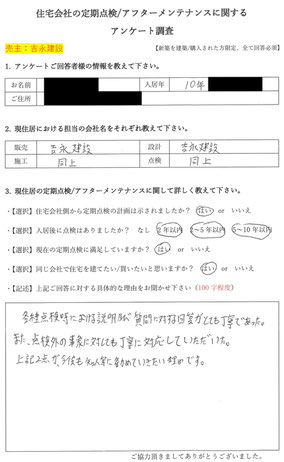 住宅会社の定期点検/アフターメンテナンスに関する
アンケート調査
売主：吉永建設
【新築を建築/購入された方限定、全て回答必須】
1. アンケートご回答者様の情報を教えて下さい。
お名前 入居年 10年
ご住所
2. 現住居における担当の会社名をそれぞれ教えて下さい。
販売 吉永建設 設計 吉永建設
施工 同上 点検 同上
3. 現住居の定期点検/アフターメンテナンスに関して詳しく教えて下さい。
・【選択】住宅会社側から定期点検の計画は示されましたか？ はい or いいえ
・【選択】入居後に点検はありましたか？ なし 2年以内 2～5年以内 5～10年以内
・【選択】現在の定期点検に満足していますか？ はい or いいえ
・【選択】同じ会社で住宅を建てたい/買いたいと思いますか？ はい or いいえ
・【記述】上記ご回答に対する具体的な理由をお聞かせ下さい（100字程度）
各種点検時における説明及び質問に対する回答がとても丁寧であった。
また、点検外の事案に対しても丁寧に対応していただいた。
上記2点が、今後も知人等に勧めていきたい理由です。
ご協力頂きましてありがとうございました。